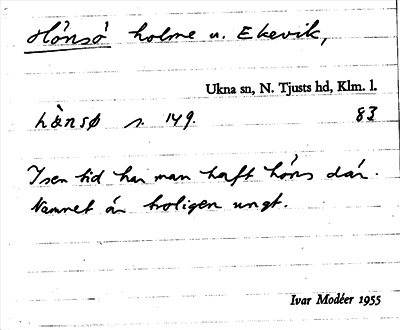 Hönsö holme u. Ekevik,
Ukna sn, N. Tjusts hd, Klm. l.
hànsø s. 149. 83
I sen tid har man haft höns där.
Namnet är troligen ungt.
Ivar Modéer 1955